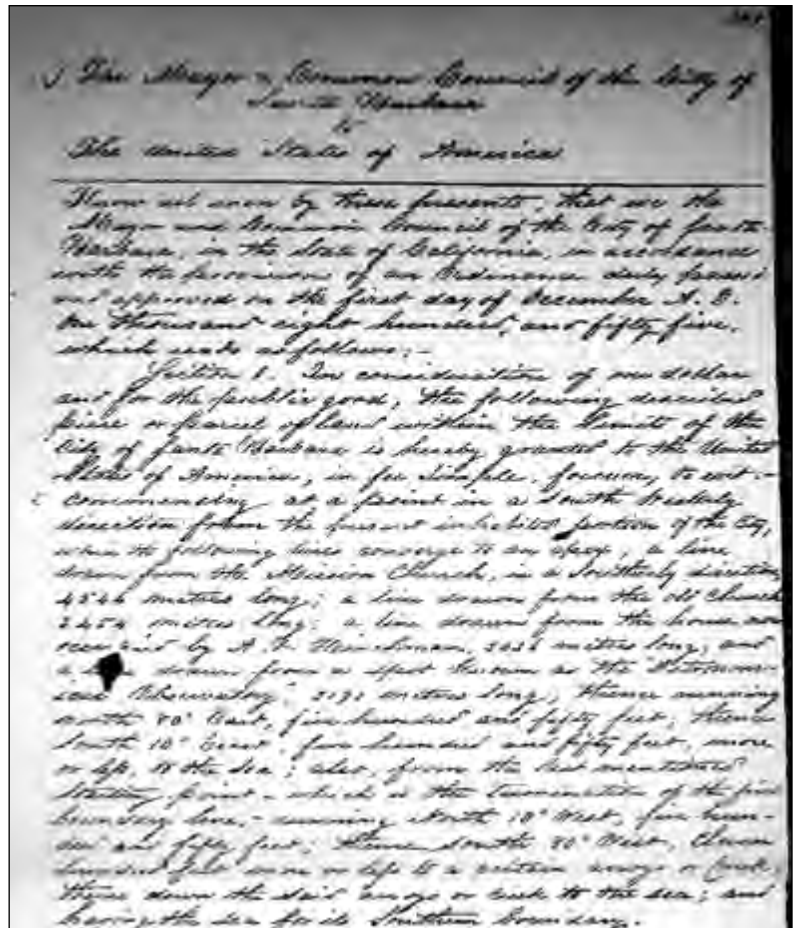 The Mayor & Common Council of the City of
Santa Barbara
to
The United States of America
Know all men by these presents, that we the
Mayor and Common Council of the City of Santa
Barbara, in the State of California, in accordance
with the provisions of an Ordinance duly passed
and approved on the first day of December A. D.
One thousand eight hundred, and fifty five,
which reads as follows: -
Section 1. In consideration of one dollar
and for the public good, the following described
piece or parcel of land within the limits of the
City of Santa Barbara is hereby granted to the United
States of America, in fee simple, forever, to wit: -
Commencing at a point in a South Westerly
direction from the present inhabited portion of the City,
where the following lines converge to an apex, a line
drawn from the Mission Church, in a Southerly direction
metres long; a line drawn from the old Church
2454 metres long; a line drawn from the house now
occupied by A. F. Hinchman, metres long, and
a line drawn from a spot known as the
Observatory, metres long; thence running
North 80° East, five hundred and fifty feet; thence
South 10° East, five hundred and fifty feet, more
or less, to the sea; also, from the last mentioned
starting point - which is the termination of the first
boundary line, - running North 10° West, five hun-
dred and fifty feet; thence South 80° West,
hundred feet more or less to a certain arroyo or Creek,
thence down the said arroyo or creek to the sea; and
having the sea for its Southern boundary.